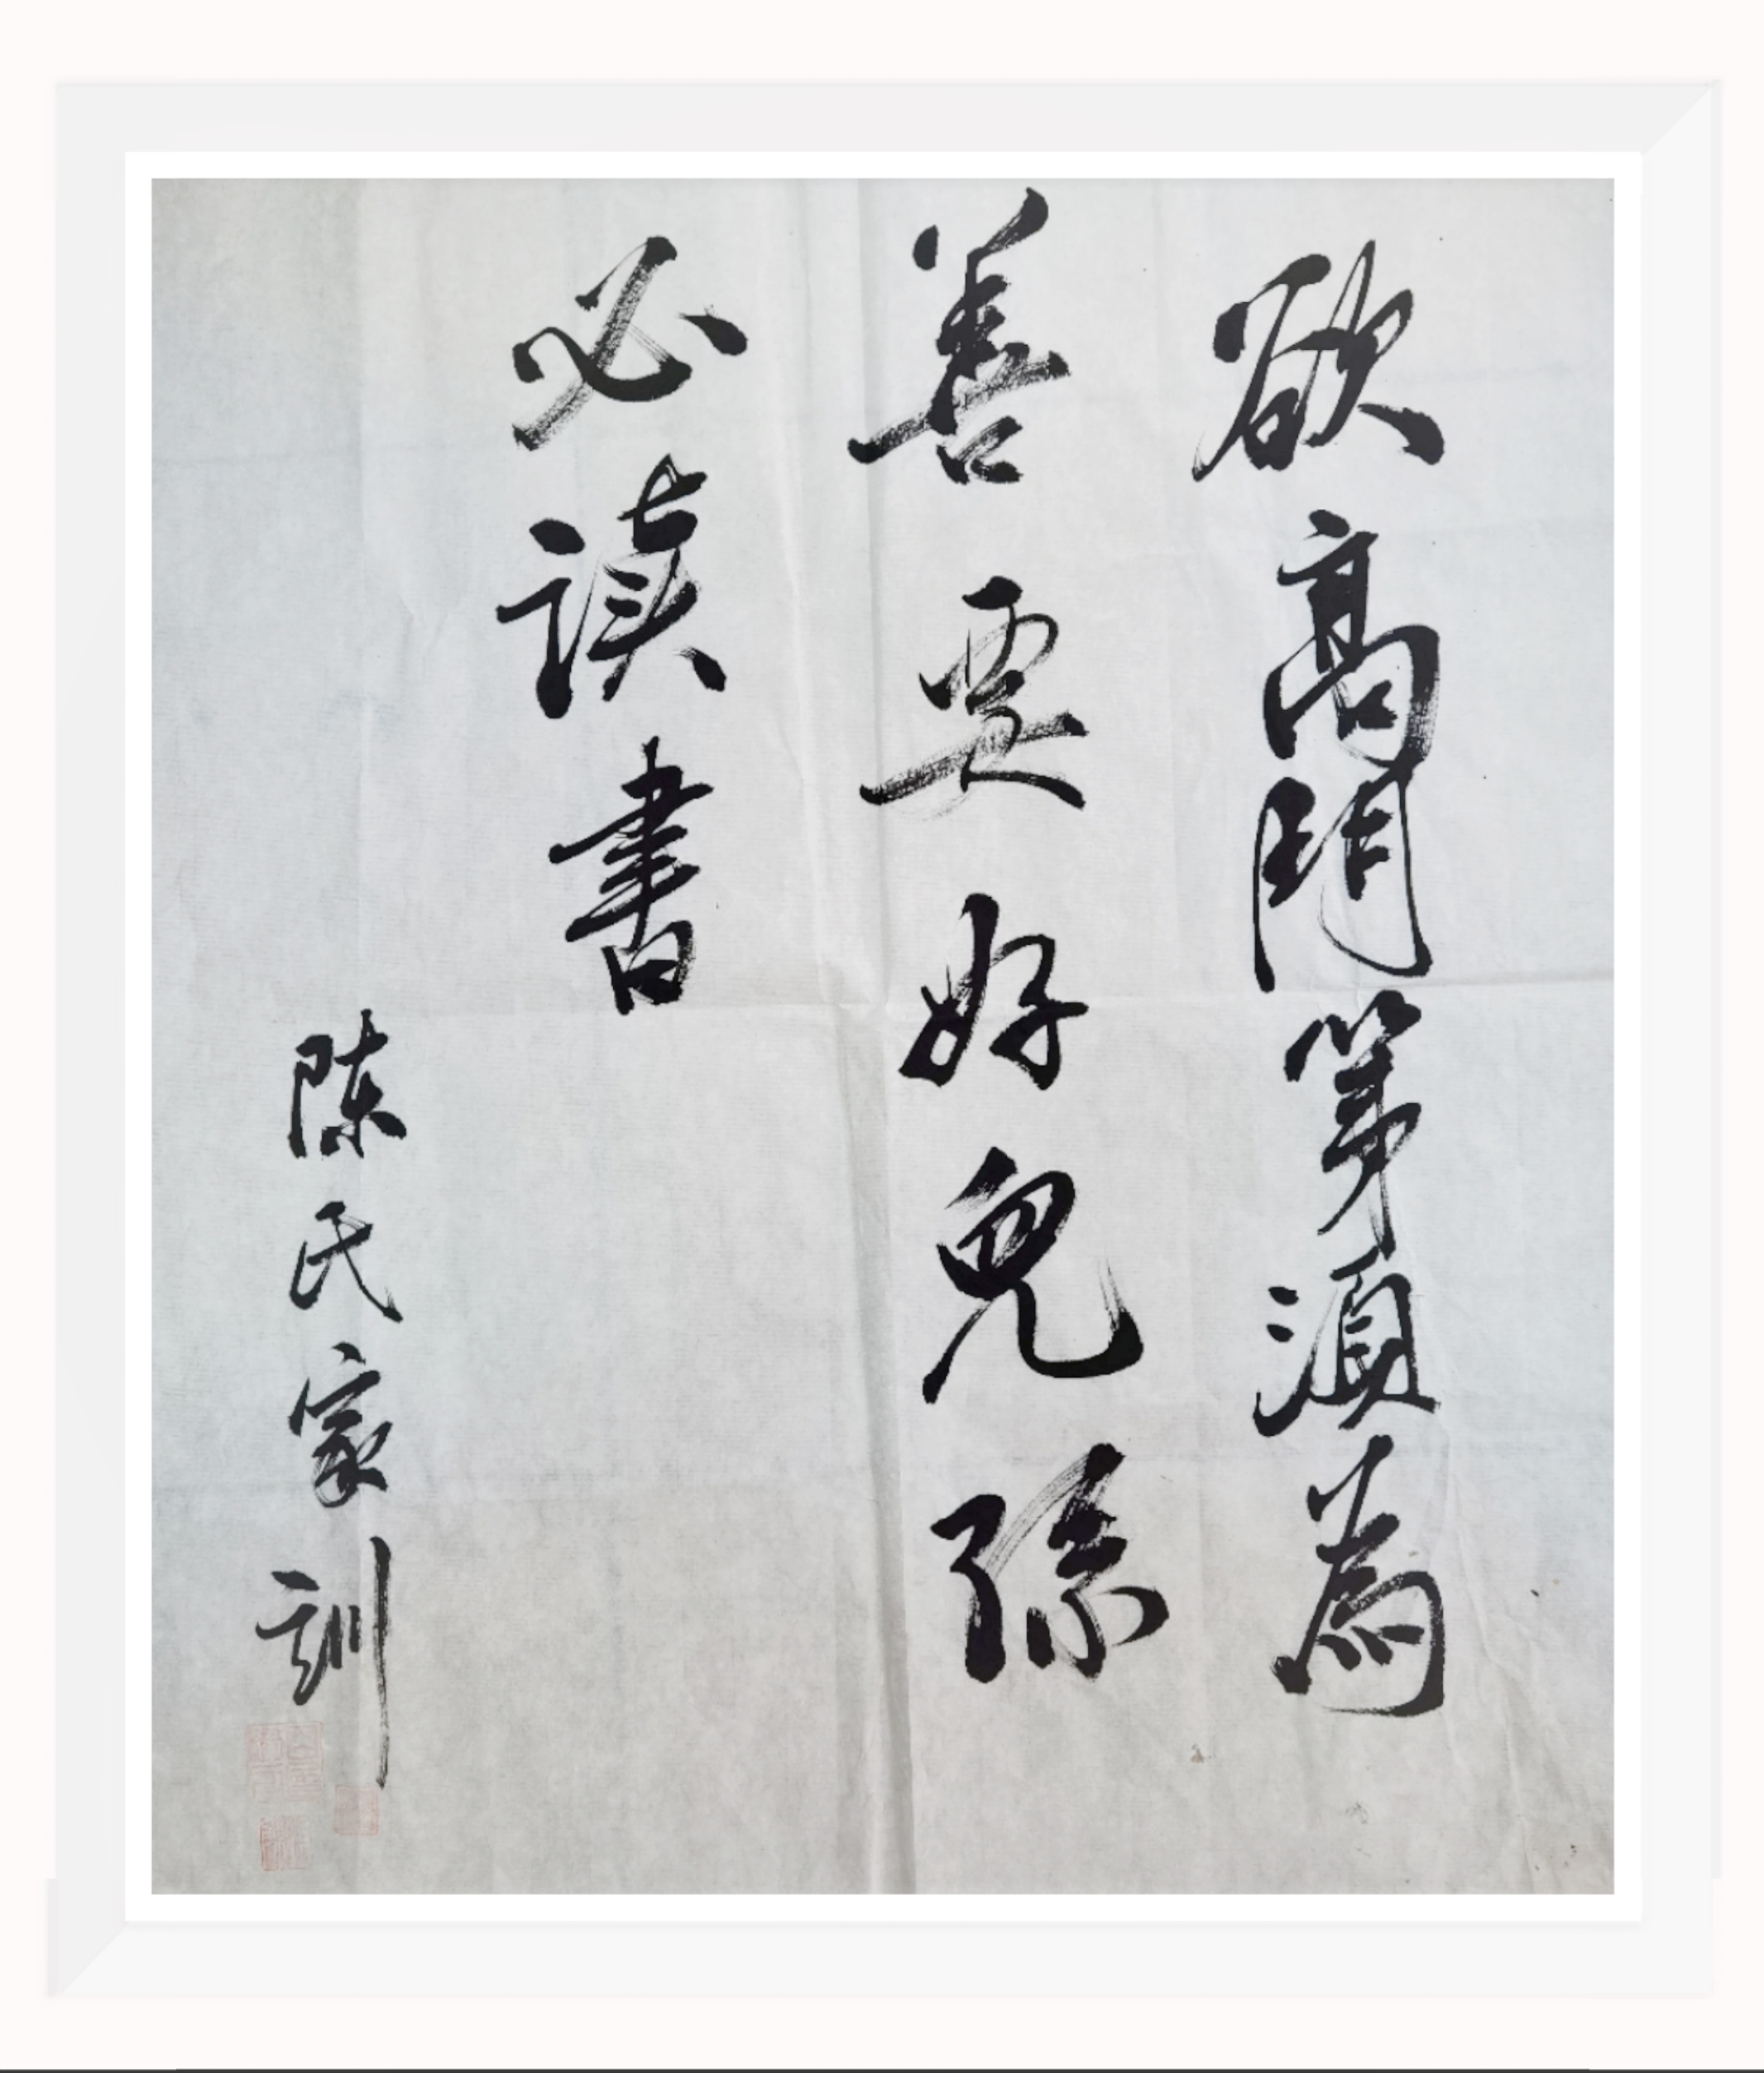 欲高門第須為
善要好兒孫
必读書
陳氏家訓